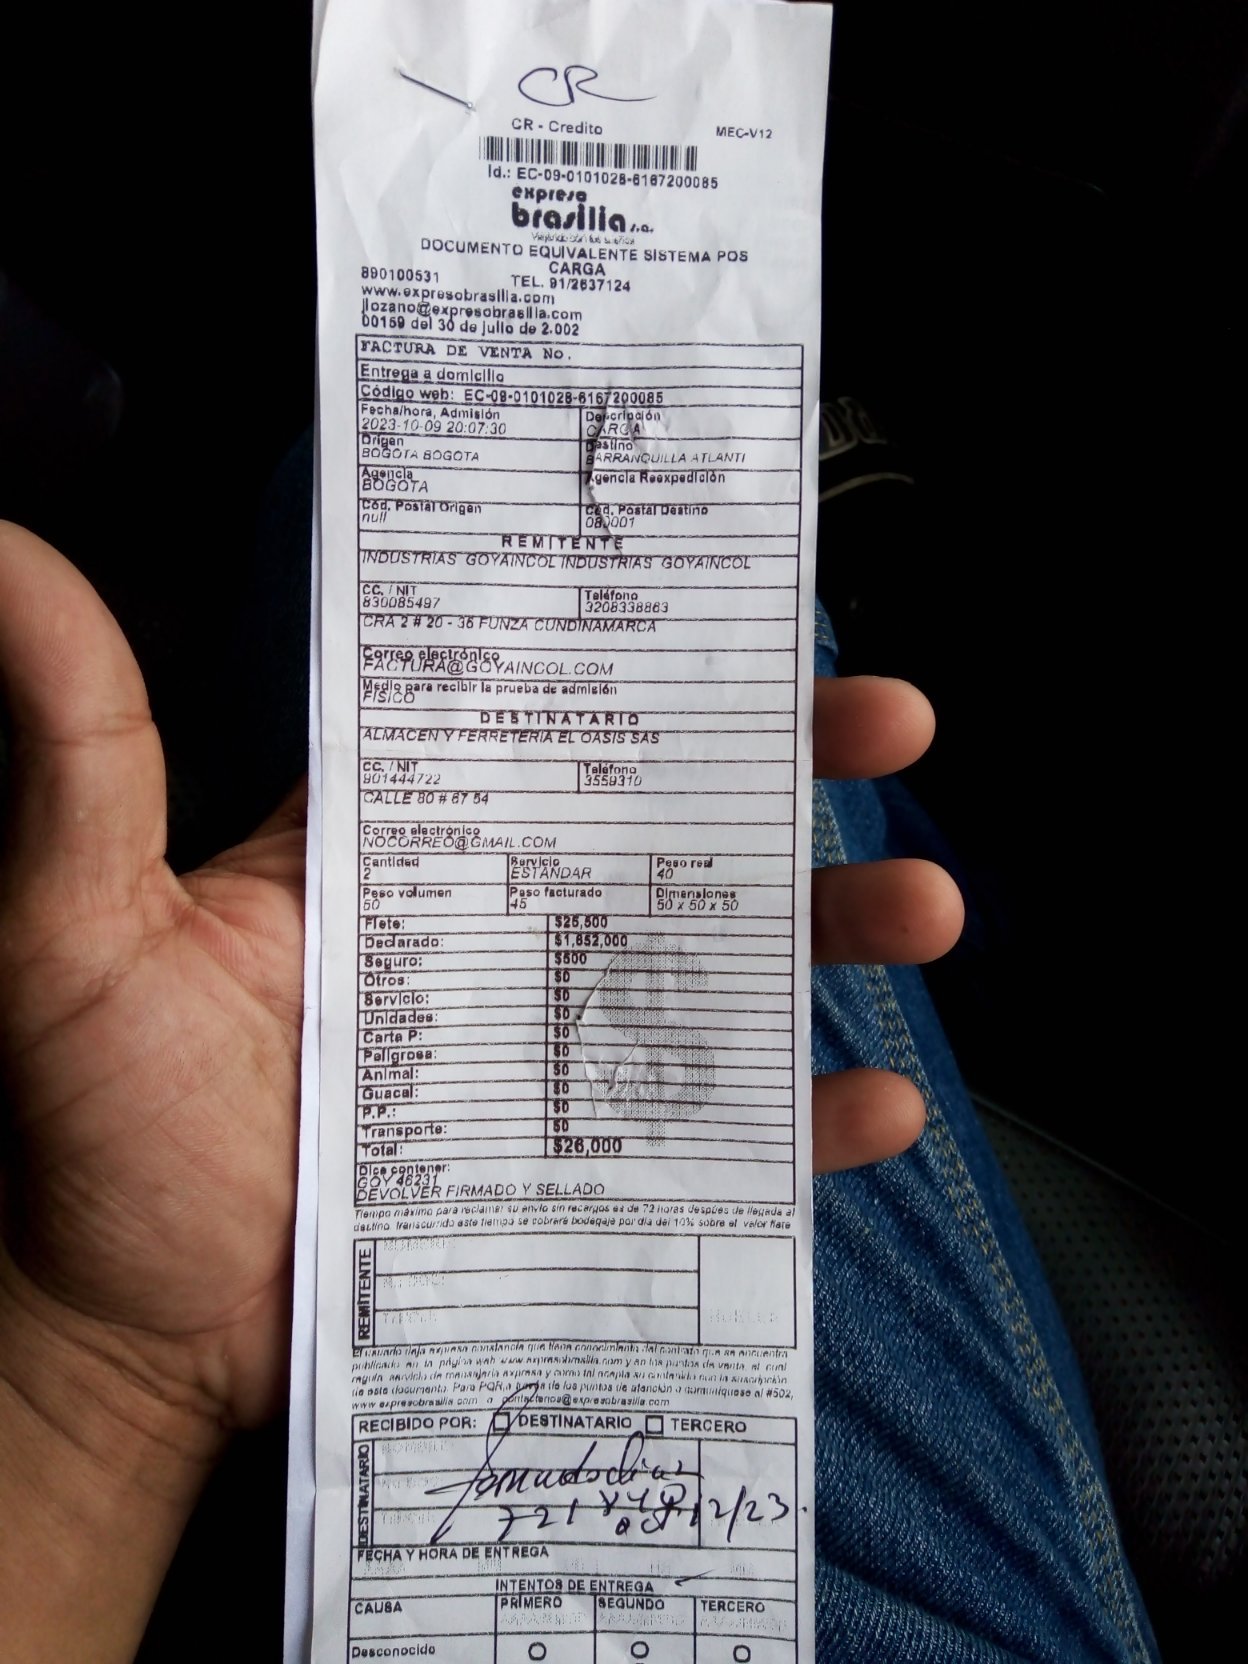 CR
CR - Credito MEC-V12
Id.: EC-09-0101028-6167200085
expreso
brasilia s.a.
DOCUMENTO EQUIVALENTE SISTEMA POS
CARGA
890100531 TEL. 91/2637124
www.expresobrasilia.com
jlozano@expresobrasilia.com
00159 del 30 de julio de 2.002
FACTURA DE VENTA No.
Entrega a domicilio
Código web: EC-09-0101028-6167200085
Fecha/hora, Admisión Descripción
2023-10-09 20:07:30 CARGA
Origen Destino
BOGOTA BOGOTA BARRANQUILLA ATLANTI
Agencia Agencia Reexpedición
BOGOTA
Cód. Postal Origen Cód. Postal Destino
null 080001
REMITENTE
INDUSTRIAS GOYAINCOL INDUSTRIAS GOYAINCOL
CC. / NIT Teléfono
830085497 3208338863
CRA 2 # 20 - 36 FUNZA CUNDINAMARCA
Correo electrónico
FACTURA@GOYAINCOL.COM
Medio para recibir la prueba de admisión
FISICO
DESTINATARIO
ALMACEN Y FERRETERIA EL OASIS SAS
CC. / NIT Teléfono
901444722 3559310
CALLE 80 # 67 54
Correo electrónico
NOCORREO@GMAIL.COM
Cantidad Servicio Peso real
2 ESTANDAR 40
Peso volumen Peso facturado Dimensiones
50 45 50 x 50 x 50
Flete: $25,500
Declarado: $1,652,000
Seguro: $500
Otros: $0
Servicio: $0
Unidades: $0
Carta P: $0
Peligrosa: $0
Animal: $0
Guacal: $0
P.P.: $0
Transporte: $0
Total: $26,000
Dice contener:
GOY 46231
DEVOLVER FIRMADO Y SELLADO
Tiempo máximo para reclamar su envío sin recargos es de 72 horas despúes de llegada al
destino, transcurrido este tiempo se cobrará bodegaje por día del 10% sobre el valor flete
REMITENTE
El usuario deja expresa constancia que tiene conocimiento del contrato que se encuentra
publicado en la página web www.expresobrasilia.com y en los puntos de venta, el cual
regula servicio de mensajería expresa y como tal acepta su contenido con la suscripción
de este documento. Para PQR a través de los puntos de atención o comuníquese al #502,
www.expresobrasilia.com o contactenos@expresobrasilia.com
RECIBIDO POR: DESTINATARIO TERCERO
DESTINATARIO
721
12/23
FECHA Y HORA DE ENTREGA
INTENTOS DE ENTREGA
CAUSA PRIMERO SEGUNDO TERCERO
Desconocido